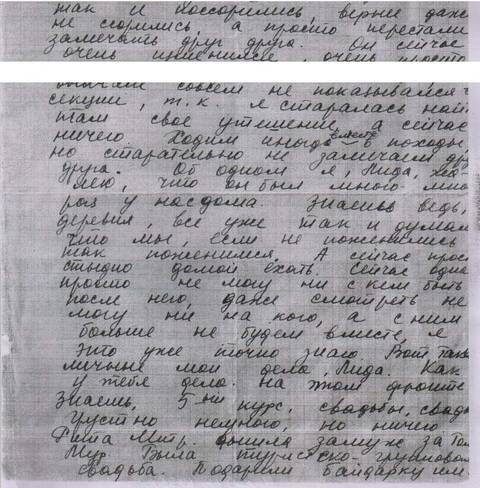 так и поссорились, верне даже
не сорились, а просто перестали
замечать друг друга. Он сейчас
очень изменился, очень просто
совсем не показывался
секции, т.к. я старалась найт
там свое утешение, а сейчас
ничего. Ходим иногда вместе в походы,
но старательно не замечаем др
друга. Об одном я, Лида, жа
лею, что он был много-мно
раз у нас дома. Знаешь ведь,
деревня, все уже так и думал
что мы, если не поженились
так поженимся. А сейчас прос
стыдно домой ехать. Сейчас одна
просто не могу ни с кем быть
после него, даже смотреть не
могу ни на кого, а с ним
больше не будем вместе, я
это уже точно знаю. Вот таки
личные мои дела, Лида. Как
у тебя дела на этом фронте
Знаешь, 5-ый курс, свадьбы, свадь
грустно немного, но ничего
Рита Митр. вышла замуж за
Мур. Была туристско-групповая
свадьба. Подарили байдарку им.